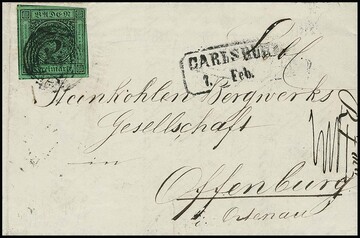 BADEN
2
CARLSRUHE
7. Feb.
Steinkohlen Bergwerks
Gesellschaft
in
Offenburg
i. Ortenau